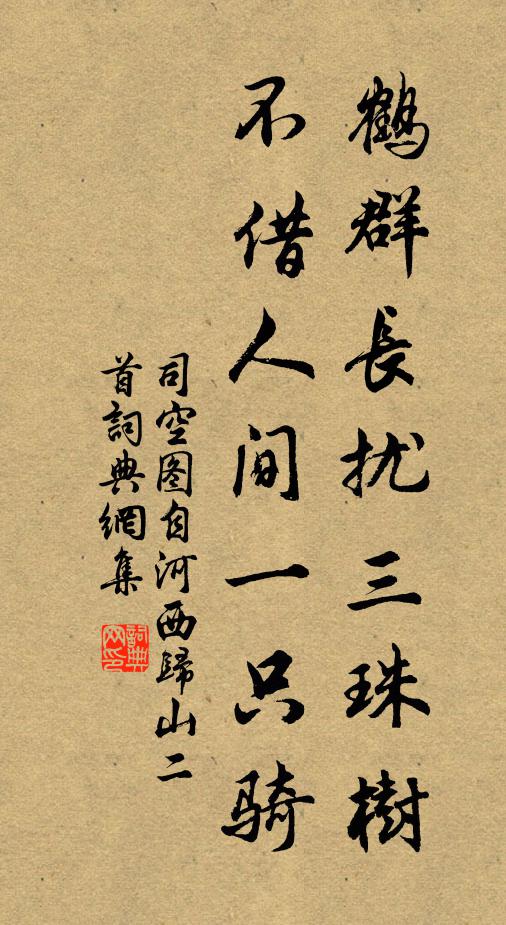 鶴群長扰三珠樹
不借人间一只骑
司空图自河西歸山二
首詞典網集
詞典
网印